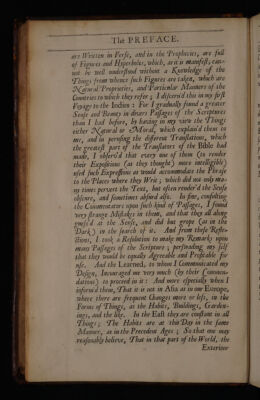 The PREFACE.
are Written in Verse, and in the Prophecies, are full
of Figures and Hyperboles, which, as it is manifest, can-
not be well understood without a Knowledge of the
Things from whence such Figures are taken, which are
Natural Proprieties, and Particular Manners of the
Countries to which they refer; I discern'd this in my first
Voyage to the Indies: For I gradually found a greater
Sense and Beauty in divers Passages of the Scriptures
than I had before, by having in my view the Things
either Natural or Moral, which explain'd them to
me, and in perusing the different Translations, which
the greatest part of the Translators of the Bible had
made, I observ'd that every one of them (to render
their Expositions (as they thought) more intelligible)
used such Expressions as would accommodate the Phrase
to the Places where they Writ; which did not only ma-
ny times pervert the Text, but often render'd the Sense
obscure, and sometimes absurd also. In fine, consulting
the Commentators upon such kind of Passages, I found
very strange Mistakes in them, and that they all along
guess'd at the Sense, and did but grope (as in the
Dark) in the search of it. And from these Reflec-
tions, I took a Resolution to make my Remarks upon
many Passages of the Scripture; perswading my self
that they would be equally Agreeable and Profitable for
use. And the Learned, to whom I Communicated my
Design, Incouraged me very much (by their Commen-
dations) to proceed in it: And more especially when I
inform'd them, That it is not in Asia as in our Europe,
where there are frequent Changes more or less, in the
Forms of Things, as the Habits, Buildings, Garden-
ings, and the like. In the East they are constant in all
Things; The Habits are at this Day in the same
Manner, as in the Precedent Ages; So that one may
reasonably believe, That in that part of the World, the
Exteriour